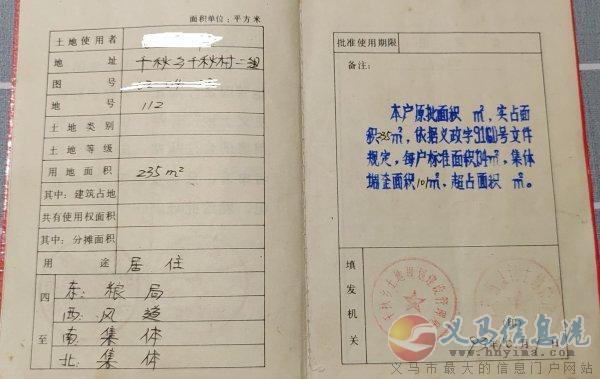 面积单位：平方米
土地使用者
地 址 千秋乡千秋村二组
图 号
地 号 112
土地类别
土地等级
用地面积 235m²
其中：建筑占地
共有使用权面积
其中：分摊面积
用 途 居住
四至
东：粮局
西：风道
南：集体
北：集体
批准使用期限
备注：
本户原批面积 ㎡，实占面
积235㎡，依据义政字 号文件
规定，每户标准面积134㎡，集体
调查面积101㎡，超占面积 ㎡。
填发机关
义马信息港
www.hnyima.com
义马市最大的信息门户网站